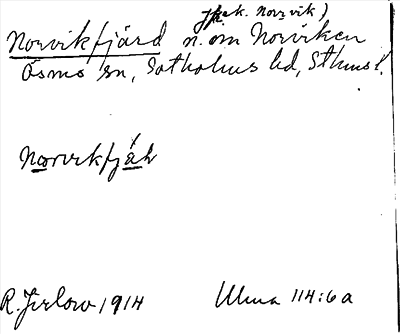 (sek. Norrvik)
Norvikfjärd n. om Norviken
Ösmo sn, Sotholms hd, Sthms l.
Norvikfjäḷ
R. Jirlow 1914 Ulma 114:6a